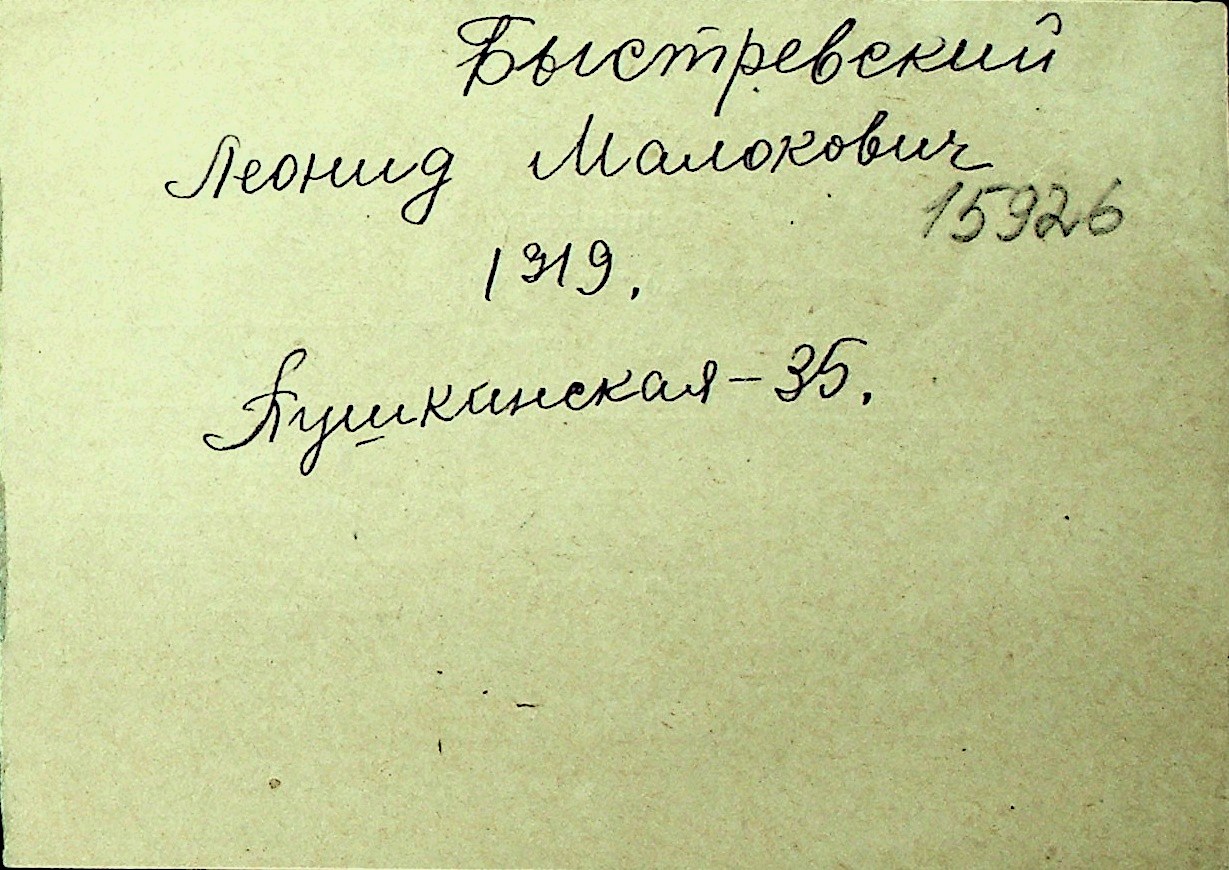 Быстревский
Леонид Малокович
15926
1919.
Пушкинская – 35.